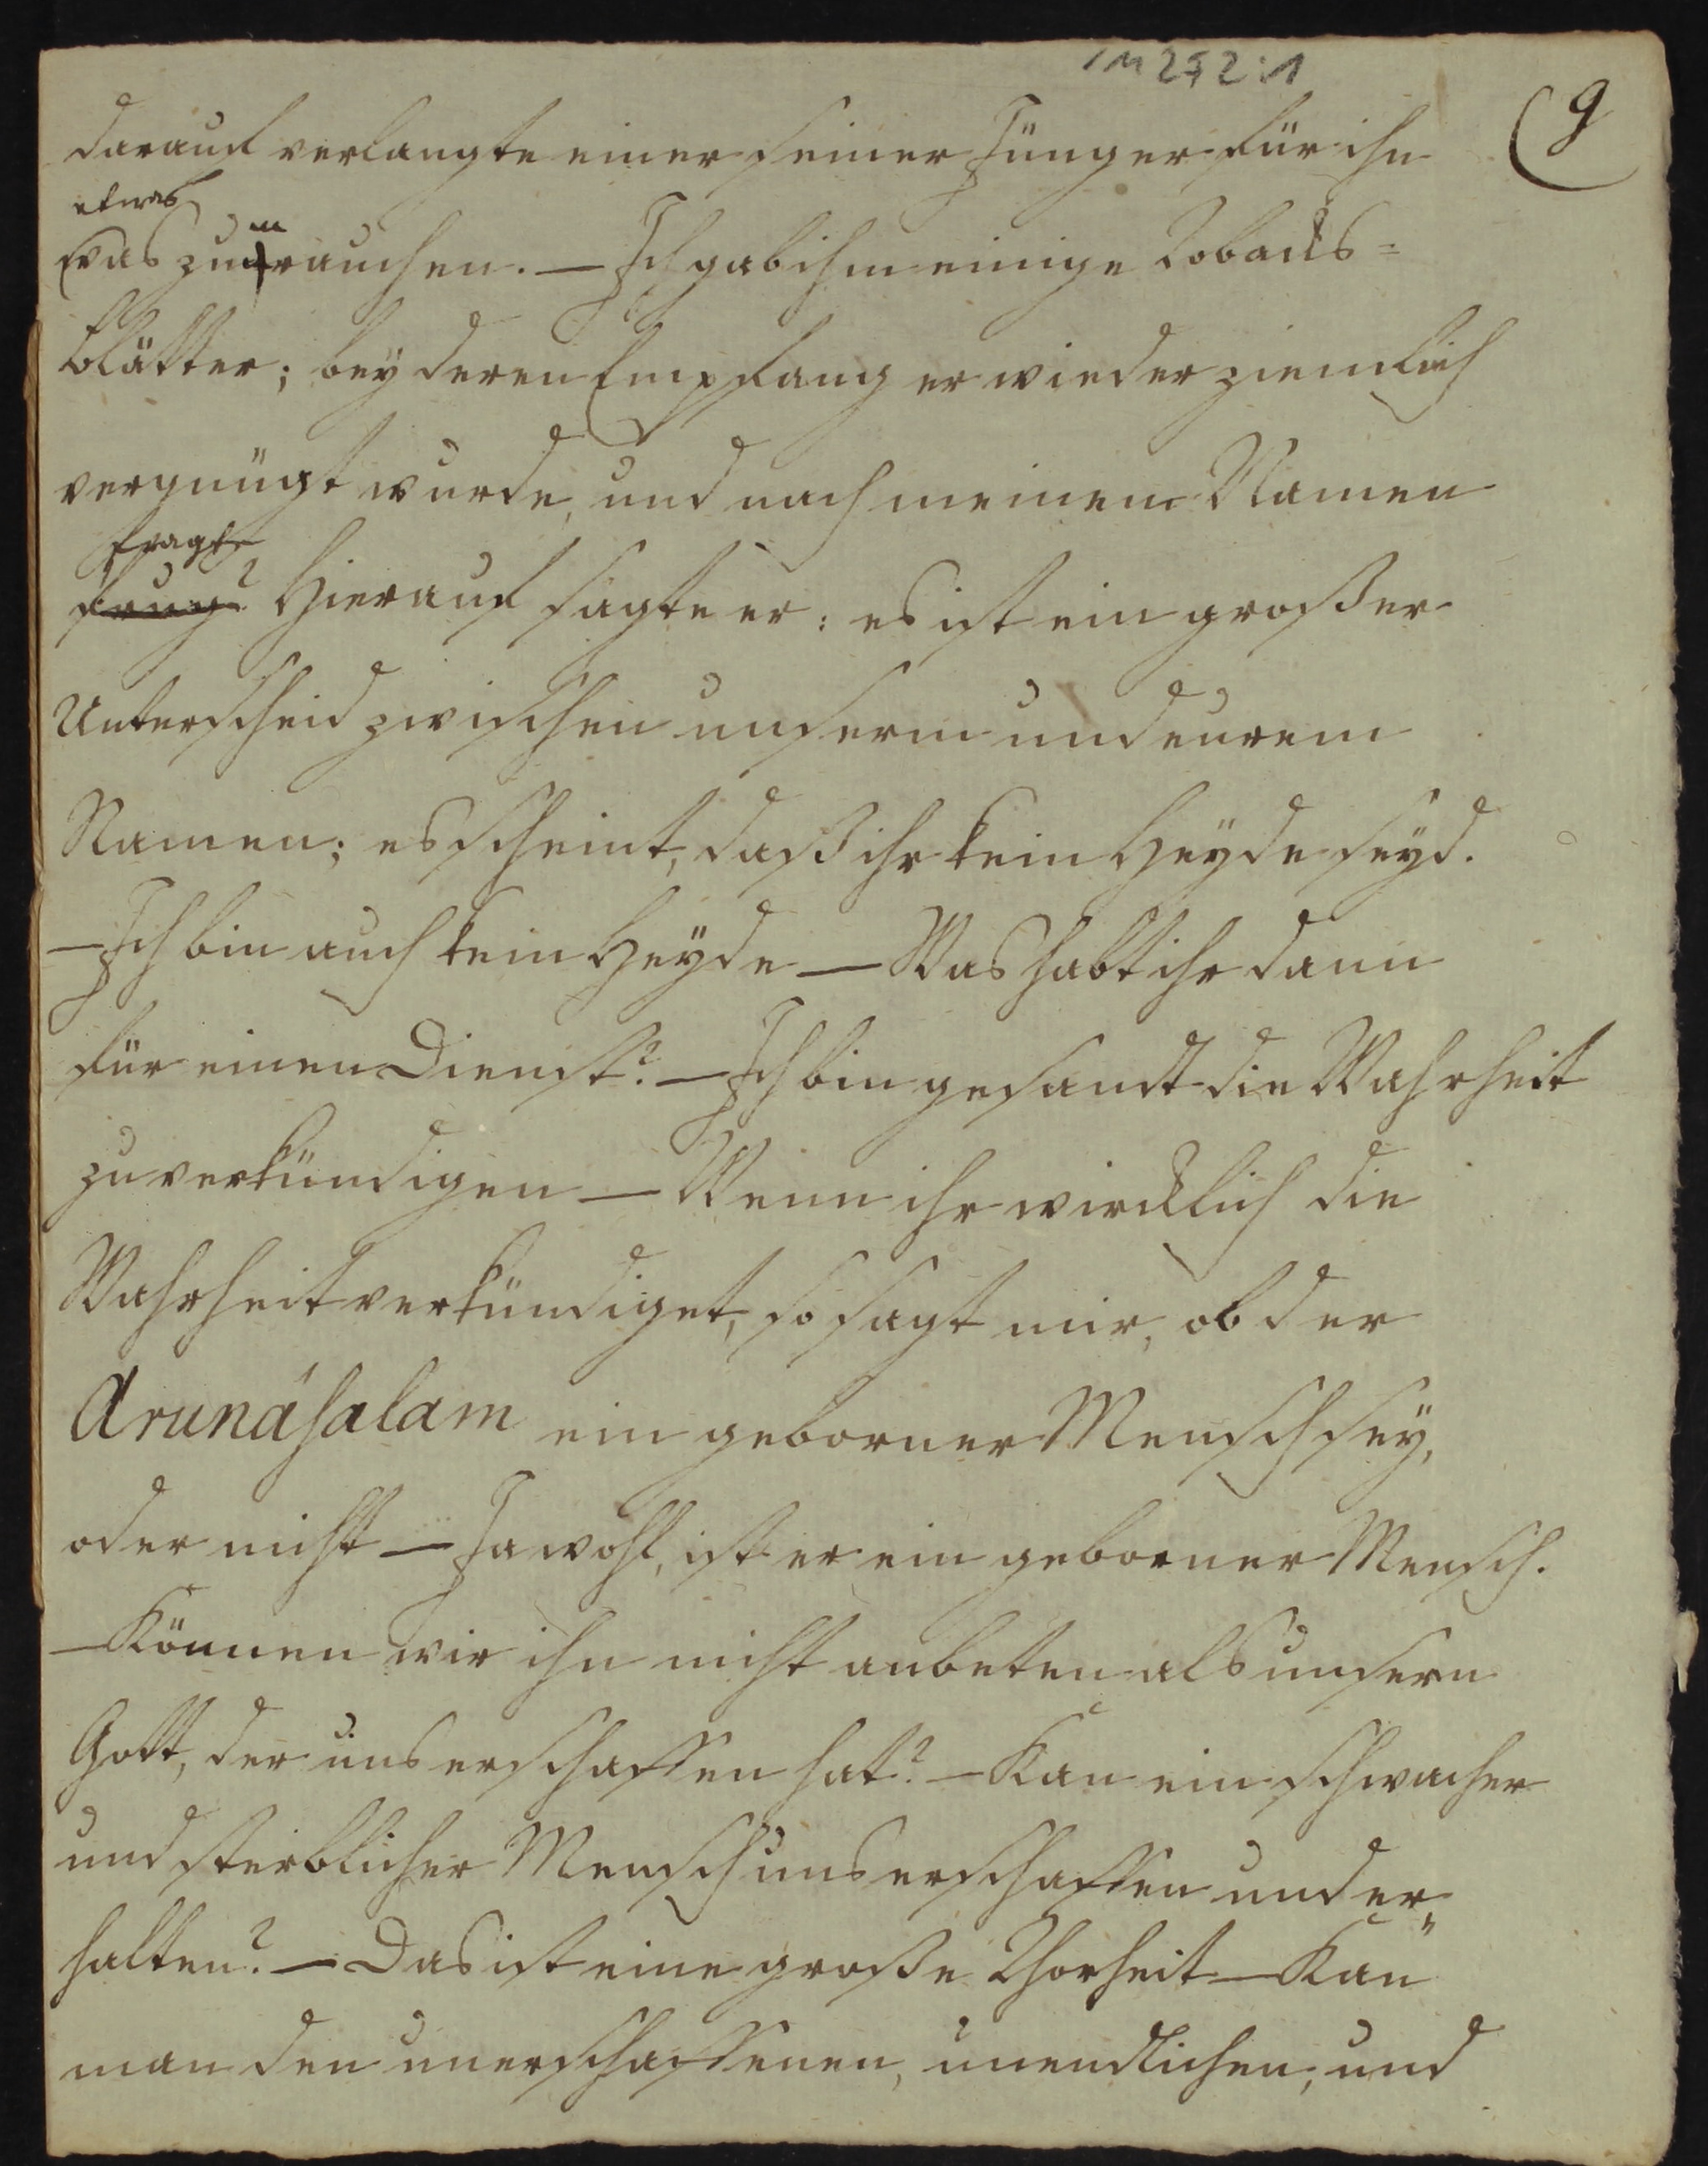 1M 2 72:1
9
darauf verlangte einer seiner Jünger für ihn
etwas
was zum rauchen. — Ich gab ihm einige Tobacks=
blätter; bey deren Empfang er wieder ziemlich
vergnügt wurde, und nach meinem Namen
fragte
frug? Hierauf sagte er: es ist ein großer
Unterscheid zwischen unserm und eurem
Namen; es scheint, daß ihr kein Heyde seyd.
— Ich bin auch kein Heyde — Was habt ihr dann
für einen Dienst? — Ich bin gesandt die Wahrheit
zu verkündigen — Wenn ihr wircklich die
Wahrheit verkündiget, so sagt mir, ob der
Arunásalam ein geborner Mensch sey,
oder nicht — Ja wohl, ist er ein geborner Mensch.
— Können wir ihn nicht anbeten als unsern
Gott, der uns erschaffen hat? — Kan ein schwacher
und sterblicher Mensch uns erschaffen und er„
halten? — Das ist eine große Thorheit — Kan
man den unerschaffenen, unendlichen, und